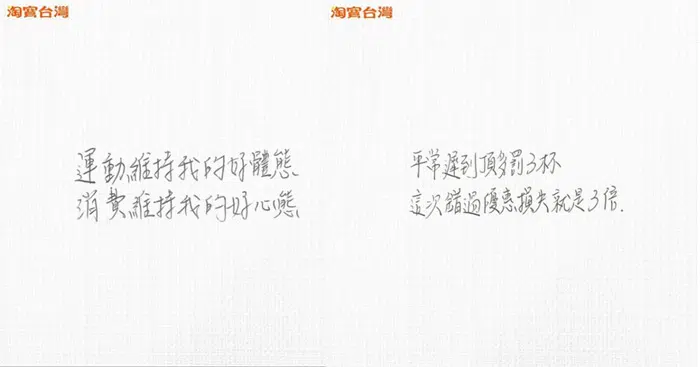 淘寶台灣
運動維持我的好體態
消費維持我的好心態
淘寶台灣
平常遲到頂多罰3杯
這次錯過優惠損失就是3倍.